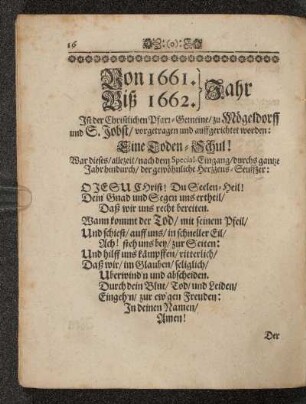 16
Von 1661.
Biß 1662. } Jahr
Ist der Christlichen Pfarr-Gemeine/ zu Mögeldorff
und S. Jobst/ vorgetragen und auffgerichtet worden:
Eine Toden-Schul!
War dieses/ allezeit/ nach dem Special-Eingang/ durchs gantze
Jahr hindurch/ der gewöhnliche Hertzens-Seuffzer:
O JESU Christ! Du Seelen-Heil!
Dein Gnad und Segen uns ertheil/
Daß wir uns recht bereiten.
Wann kommt der Tod/ mit seinem Pfeil/
Und schiest/ auff uns/ in schneller Eil/
Ach! steh uns bey/ zur Seiten:
Und hilff uns kämpffen/ ritterlich/
Daß wir/ im Glauben/ seliglich/
Uberwind'n und abscheiden.
Durch dein Blut/ Tod/ und Leiden/
Eingeh'n/ zur ew'gen Freuden:
In deinen Namen/
Amen!
Der